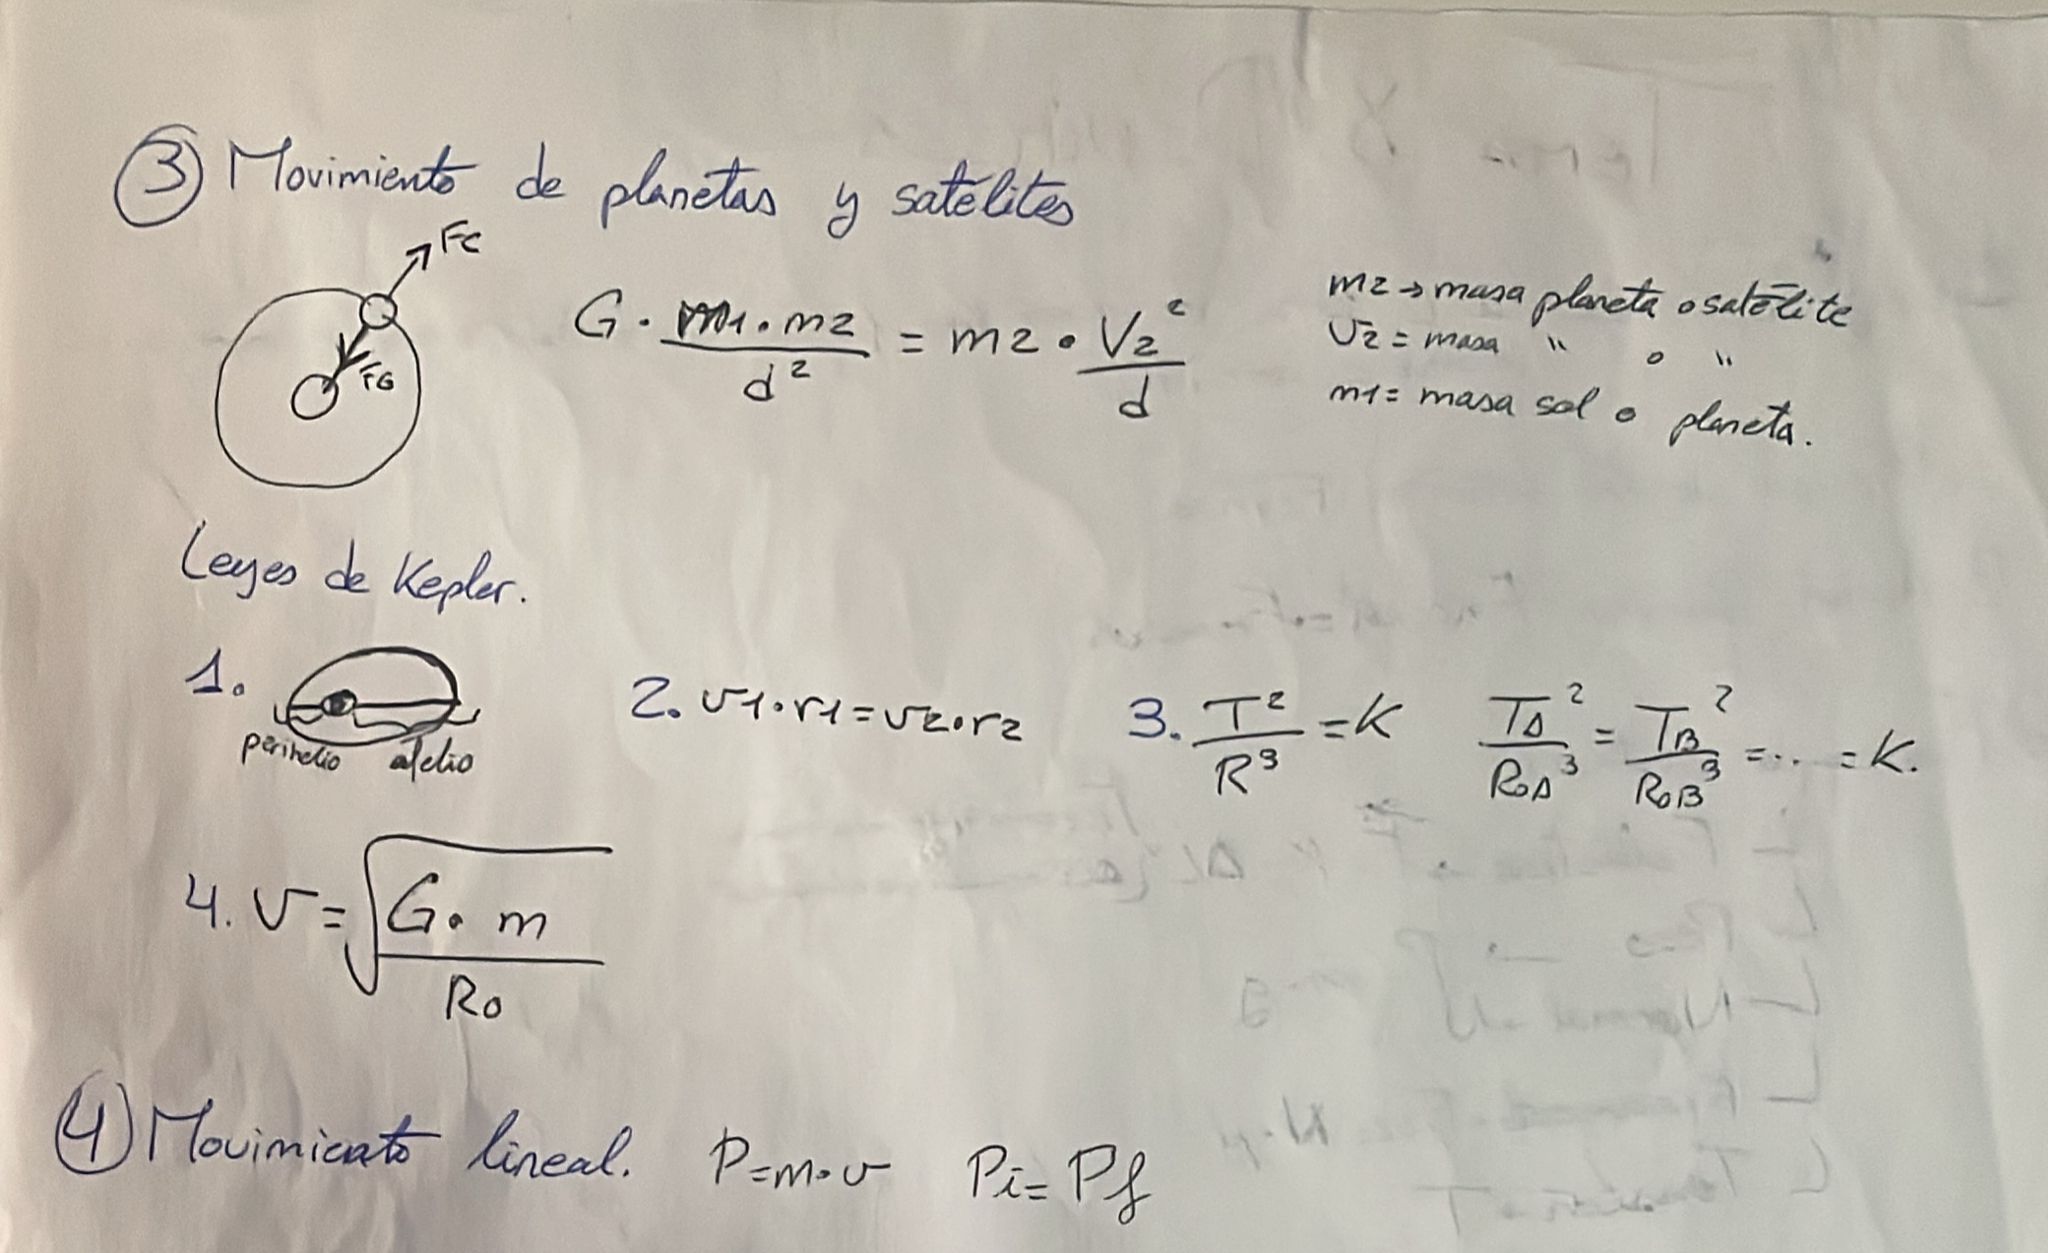 ③ Movimiento de planetas y satélites
Fc
FG
G · m1 · m2 / d² = m2 · V2² / d
m2 → masa planeta o satélite
v2 = masa " o "
m1 = masa sol o planeta.
Leyes de Kepler.
1. perihelio afelio
2. v1 · r1 = v2 · r2
3. T² / R³ = K TA² / RoA³ = TB² / RoB³ = ... = K.
4. v = √(G · m / Ro)
④ Movimiento lineal. P = m · v Pi = Pf